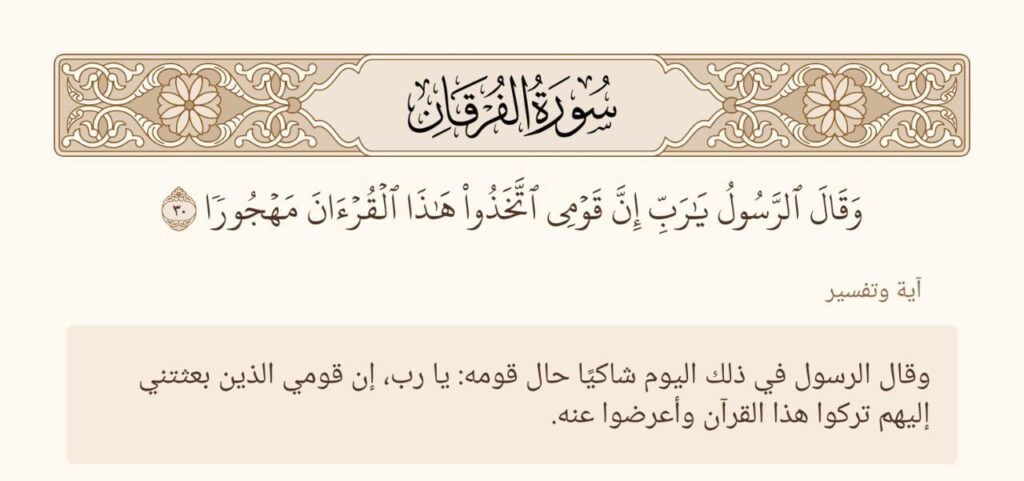 سُورَةُ الفُرْقَانِ
وَقَالَ ٱلرَّسُولُ يَـٰرَبِّ إِنَّ قَوْمِى ٱتَّخَذُوا۟ هَـٰذَا ٱلْقُرْءَانَ مَهْجُورًۭا ٣٠
آية وتفسير
وقال الرسول في ذلك اليوم شاكيًا حال قومه: يا رب، إن قومي الذين بعثتني
إليهم تركوا هذا القرآن وأعرضوا عنه.